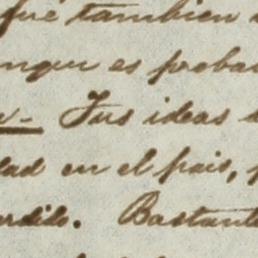 fué tambien
es probab
Sus ideas
dad en el pais,
erdido. Bastante